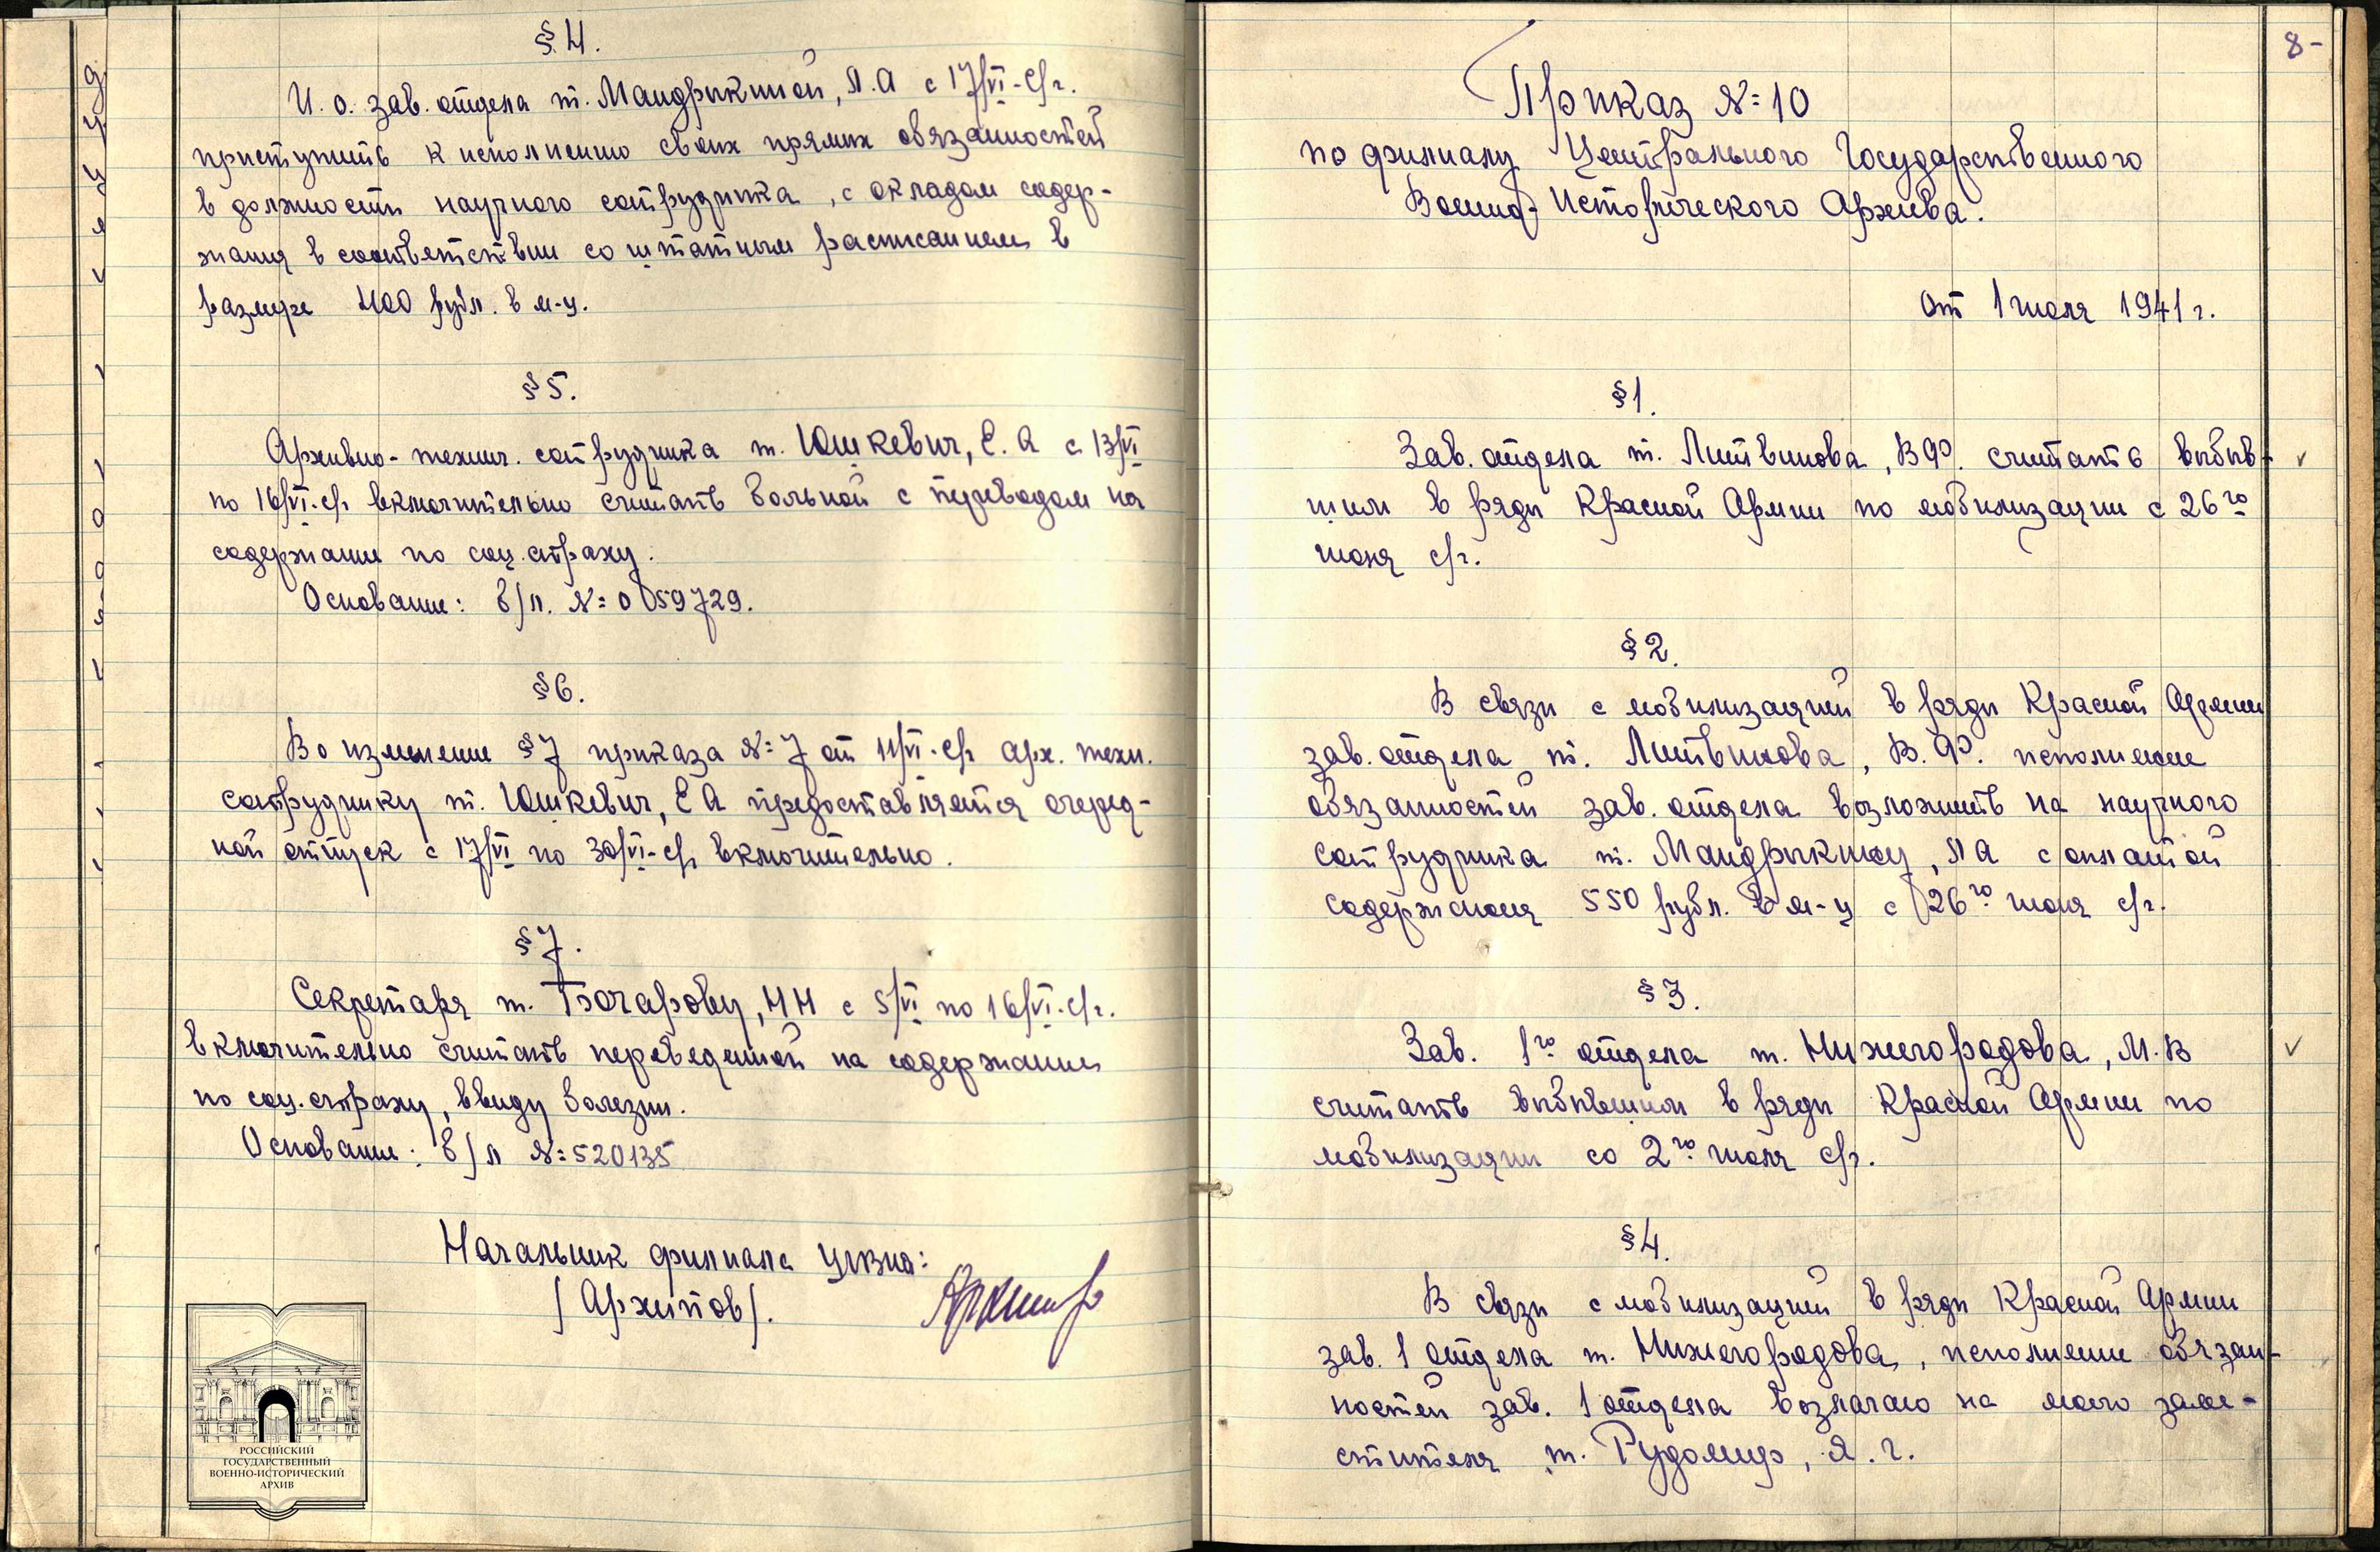 § 4.
И. о. зав. отдела т. Мандрыкиной, Л.А с 17/VI-с/г.
приступить к исполнению своих прямых обязанностей
в должности научного сотрудника, с окладом содер-
жания в соответствии со штатным расписанием в
размере 400 рубл. в м-ц.
§ 5.
Архивно-технич. сотрудника т. Юшкевич, Е. А с 13/VI
по 16/VI-с/г включительно считать больной с переводом на
содержание по соц. страху.
Основание: б/л. №0059729.
§ 6.
Во изменение § 7 приказа № 7 от 11/VI-с/г Арх. техн.
сотруднику т. Юшкевич, Е А предоставляется очеред-
ной отпуск с 17/VI по 30/VI-с/г включительно.
§ 7.
Секретаря т. Бочарову, НН с 5/VI по 16/VI-с/г.
включительно считать переведенной на содержание
по соц. страху, ввиду болезни.
Основание: б/л №520135
Начальник филиала ЦГВИА:
/Архипов/.
РОССИЙСКИЙ
ГОСУДАРСТВЕННЫЙ
ВОЕННО-ИСТОРИЧЕСКИЙ
АРХИВ
8-
Приказ № 10
по филиалу Центрального Государственного
Военно-Исторического Архива.
от 1 июля 1941 г.
§ 1.
Зав. отдела т. Литвинова, ВФ. считать выбыв-
шим в ряды Красной Армии по мобилизации с 26го
июня с/г.
§ 2.
В связи с мобилизацией в ряды Красной Армии
зав. отдела т. Литвинова, В. Ф. исполнение
обязанностей зав. отдела возложить на научного
сотрудника т. Мандрыкину, ЛА с оплатой
содержания 550 рубл. в м-ц с 26го июня с/г.
§ 3.
Зав. 1го отдела т. Нижегородова, М.В
считать выбывшим в ряды Красной Армии по
мобилизации со 2го июля с/г.
§ 4.
В связи с мобилизацией в ряды Красной Армии
зав. 1 отдела т. Нижегородова, исполнение обязан-
ностей зав. 1 отдела возлагаю на моего заме-
стителя т. Рудомир, Я. Г.